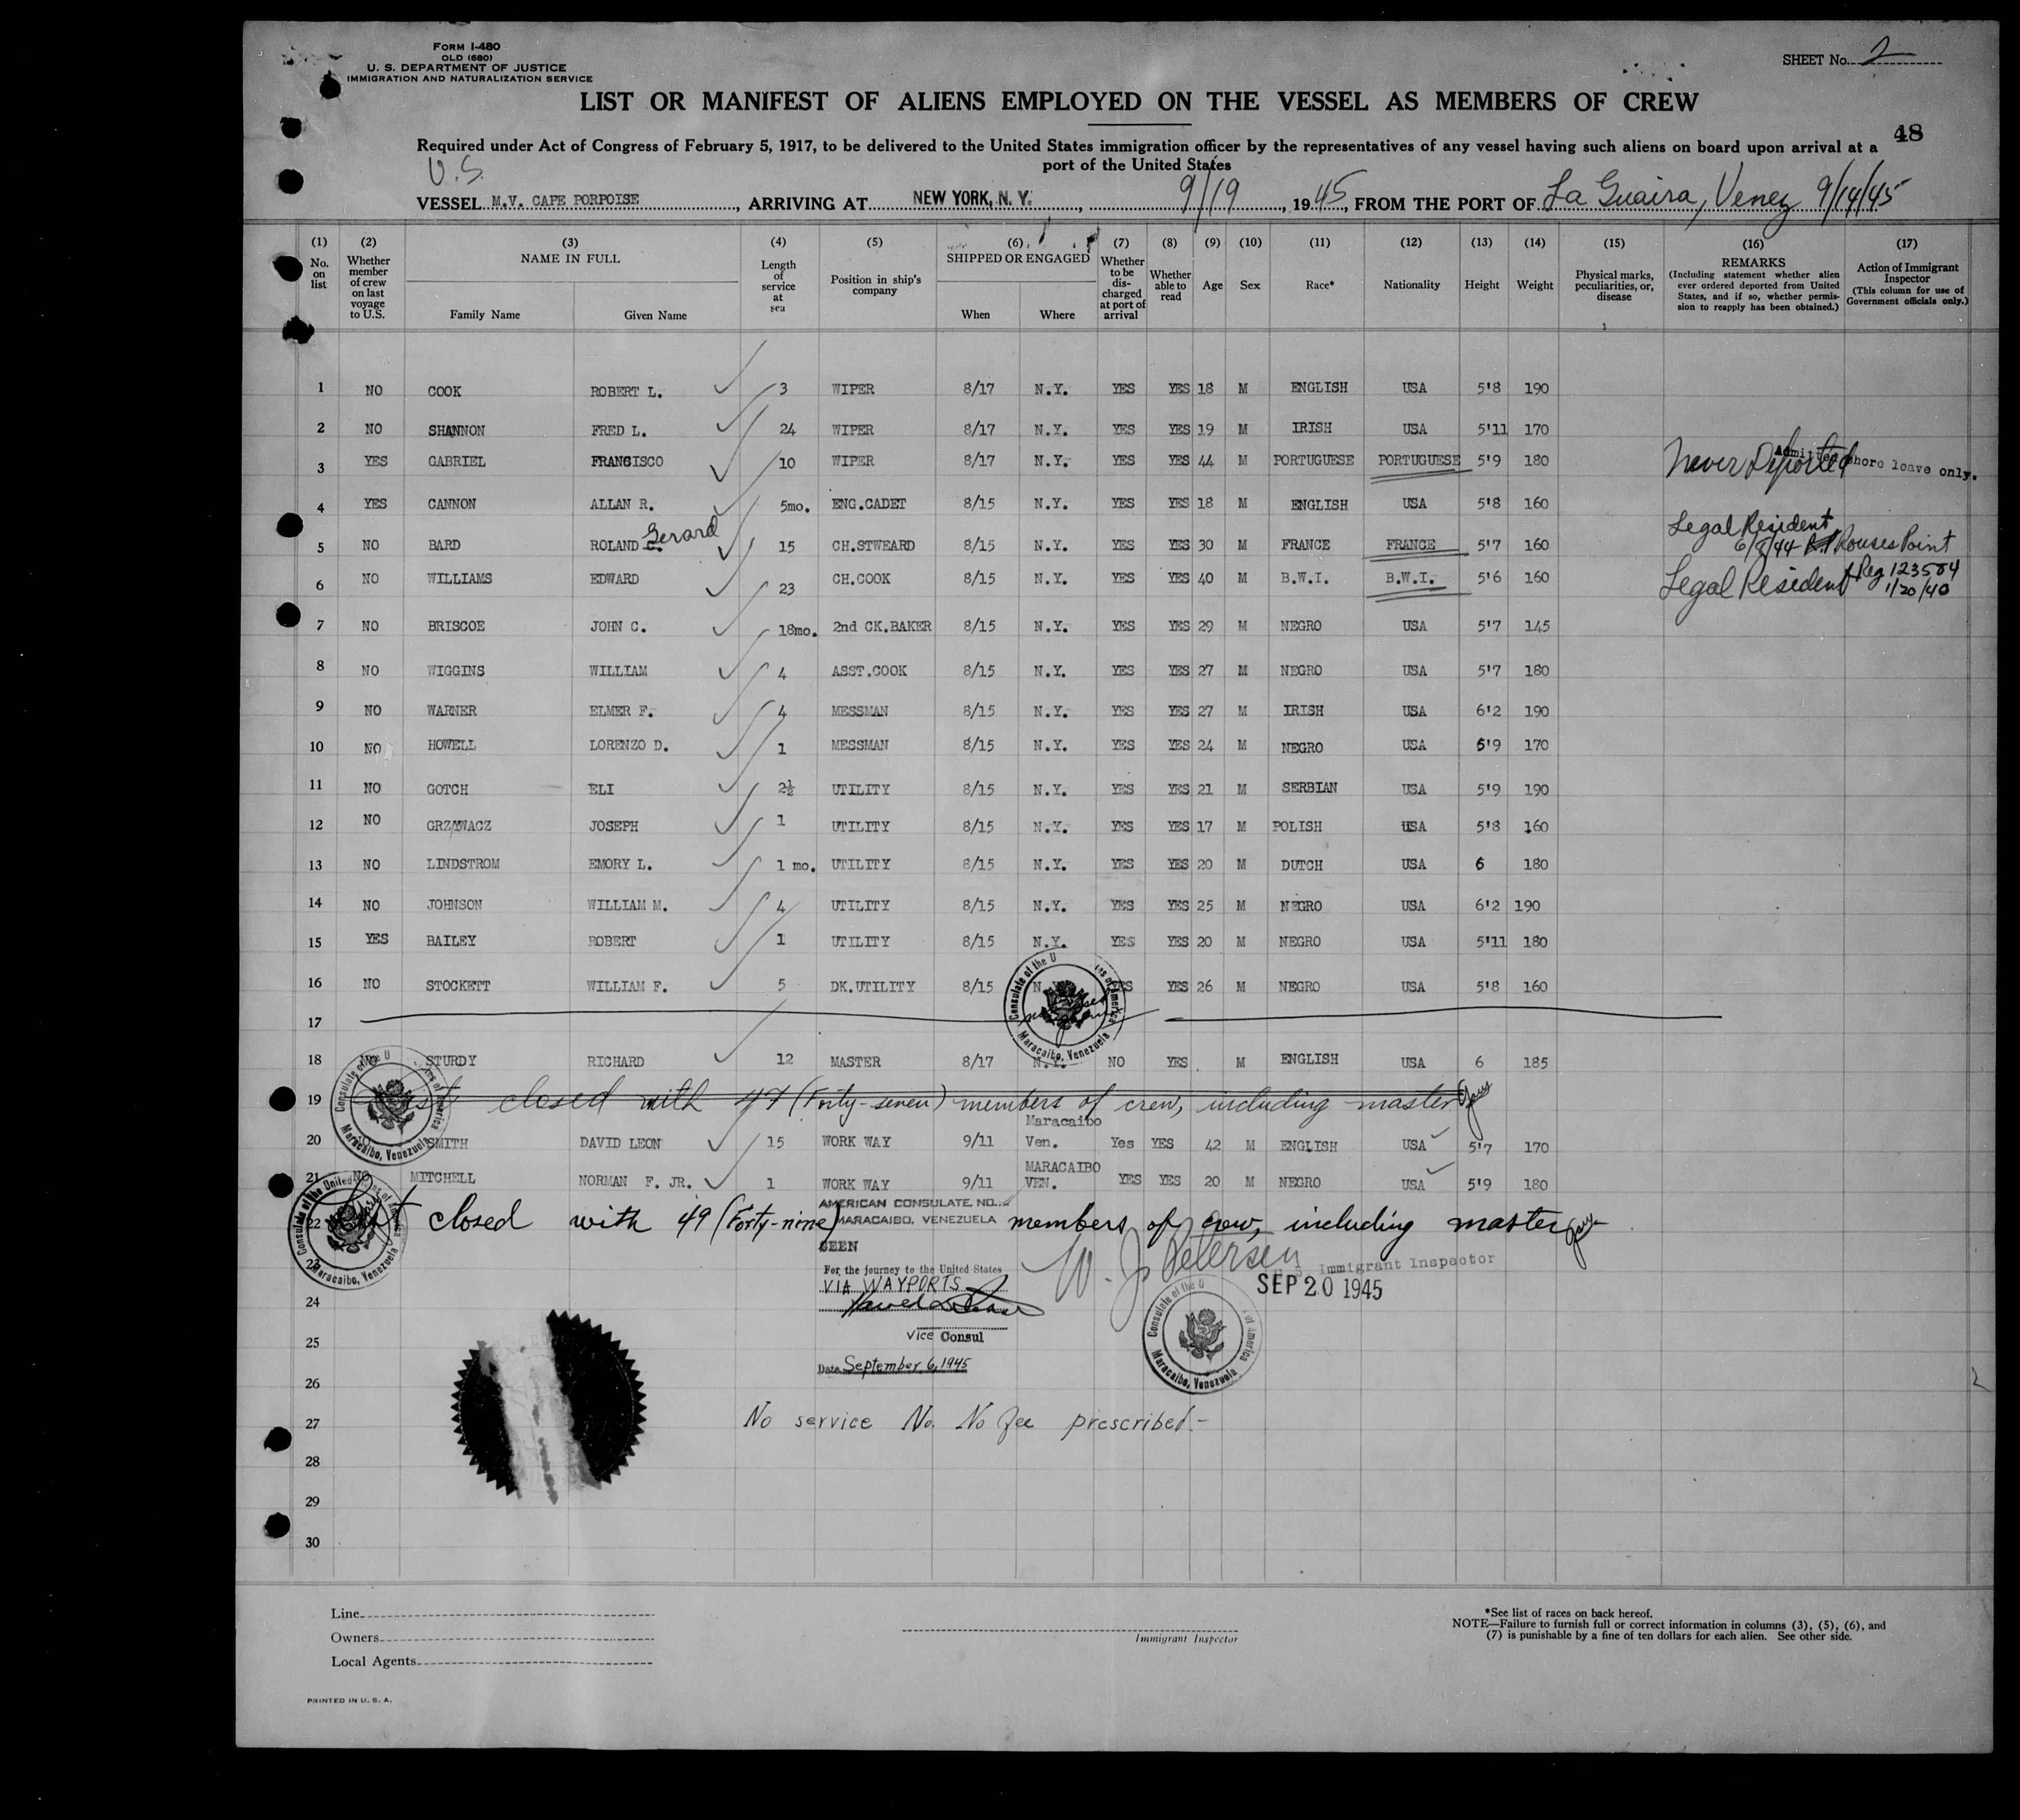 FORM I-480
OLD (680)
U. S. DEPARTMENT OF JUSTICE
IMMIGRATION AND NATURALIZATION SERVICE
SHEET No. 2
LIST OR MANIFEST OF ALIENS EMPLOYED ON THE VESSEL AS MEMBERS OF CREW
48
Required under Act of Congress of February 5, 1917, to be delivered to the United States immigration officer by the representatives of any vessel having such aliens on board upon arrival at a
port of the United States
U.S.
VESSEL M.V. CAPE PORPOISE, ARRIVING AT NEW YORK, N. Y., 9/19, 1945, FROM THE PORT OF La Guaira, Venez 9/14/45
(1) No. on list (2) Whether member of crew on last voyage to U.S. (3) NAME IN FULL Family Name Given Name (4) Length of service at sea (5) Position in ship's company (6) SHIPPED OR ENGAGED When Where (7) Whether to be discharged at port of arrival (8) Whether able to read (9) Age (10) Sex (11) Race* (12) Nationality (13) Height (14) Weight (15) Physical marks, peculiarities, or, disease (16) REMARKS (Including statement whether alien ever ordered deported from United States, and if so, whether permission to reapply has been obtained.) (17) Action of Immigrant Inspector (This column for use of Government officials only.)
1 NO COOK ROBERT L. 3 WIPER 8/17 N.Y. YES YES 18 M ENGLISH USA 5'8 190
2 NO SHANNON FRED L. 24 WIPER 8/17 N.Y. YES YES 19 M IRISH USA 5'11 170
3 YES GABRIEL FRANCISCO 10 WIPER 8/17 N.Y. YES YES 44 M PORTUGUESE PORTUGUESE 5'9 180 Never Deported Admitted shore leave only.
4 YES CANNON ALLAN R. 5mo. ENG.CADET 8/15 N.Y. YES YES 18 M ENGLISH USA 5'8 160
5 NO BARD ROLAND G. Gerard 15 CH.STWEARD 8/15 N.Y. YES YES 30 M FRANCE FRANCE 5'7 160 Legal Resident 6/8/44 Rouses Point
6 NO WILLIAMS EDWARD 23 CH.COOK 8/15 N.Y. YES YES 40 M B.W.I. B.W.I. 5'6 160 Legal Resident Reg 123584 1/20/40
7 NO BRISCOE JOHN C. 18mo. 2nd CK.BAKER 8/15 N.Y. YES YES 29 M NEGRO USA 5'7 145
8 NO WIGGINS WILLIAM 4 ASST.COOK 8/15 N.Y. YES YES 27 M NEGRO USA 5'7 180
9 NO WARNER ELMER F. 4 MESSMAN 8/15 N.Y. YES YES 27 M IRISH USA 6'2 190
10 NO HOWELL LORENZO D. 1 MESSMAN 8/15 N.Y. YES YES 24 M NEGRO USA 5'9 170
11 NO GOTCH ELI 2½ UTILITY 8/15 N.Y. YES YES 21 M SERBIAN USA 5'9 190
12 NO GRZYWACZ JOSEPH 1 UTILITY 8/15 N.Y. YES YES 17 M POLISH USA 5'8 160
13 NO LINDSTROM EMORY L. 1 mo. UTILITY 8/15 N.Y. YES YES 20 M DUTCH USA 6 180
14 NO JOHNSON WILLIAM M. 4 UTILITY 8/15 N.Y. YES YES 25 M NEGRO USA 6'2 190
15 YES BAILEY ROBERT 1 UTILITY 8/15 N.Y. YES YES 20 M NEGRO USA 5'11 180
16 NO STOCKETT WILLIAM F. 5 DK.UTILITY 8/15 N. YES YES 26 M NEGRO USA 5'8 160
17
Consulate of the U of America Maracaibo, Venezuela
18 STURDY RICHARD 12 MASTER 8/17 N.Y. NO YES M ENGLISH USA 6 185
19 List closed with 47 (Forty-seven) members of crew, including master
Consulate of the U Maracaibo, Venezuela
20 SMITH DAVID LEON 15 WORK WAY 9/11 Maracaibo Ven. Yes YES 42 M ENGLISH USA 5'7 170
21 NO MITCHELL NORMAN F. JR. 1 WORK WAY 9/11 MARACAIBO VEN. YES YES 20 M NEGRO USA 5'9 180
22 List closed with 49 (Forty-nine) members of crew, including master
Consulate of the United States of America Maracaibo, Venezuela
AMERICAN CONSULATE, NO.
MARACAIBO, VENEZUELA
SEEN
23
For the journey to the United States
VIA WAYPORTS
W. J. Petersen
U.S. Immigrant Inspector
SEP 20 1945
24
Vice Consul
25
Date September 6, 1945
Consulate of the U of America Maracaibo, Venezuela
26
27 No service No. No fee prescribed.-
28
29
30
Line
Owners
Local Agents
Immigrant Inspector
*See list of races on back hereof.
NOTE—Failure to furnish full or correct information in columns (3), (5), (6), and
(7) is punishable by a fine of ten dollars for each alien. See other side.
PRINTED IN U. S. A.